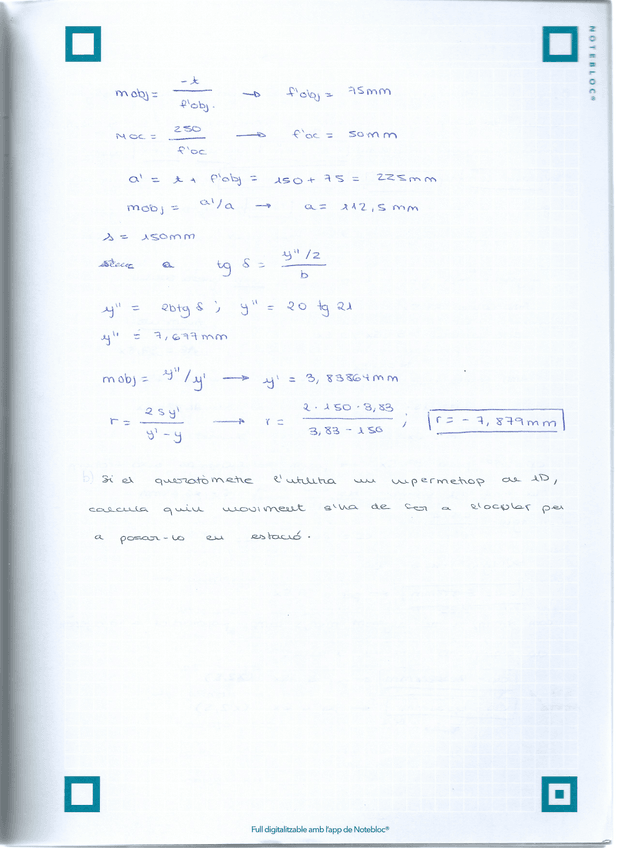 NOTEBLOC®
mobj = -t / f'obj. → f'obj = 75mm
Moc = 250 / f'oc → f'oc = 50mm
a' = t + f'obj = 150 + 75 = 225mm
mobj = a'/a → a = 112,5 mm
s = 150mm
tg δ = y''/2 / b
y'' = 2btg δ ; y'' = 20 tg 21
y'' = 7,677mm
mobj = y''/y' → y' = 3,83864mm
r = 2sy' / y'-y → r = 2·150·3,83 / 3,83-150 ; r = -7,879mm
b) Si el queratòmetre l'utilitza un hipermetrop de 1D,
calcula quin moviment s'ha de fer a l'ocular per
a posar-lo en estació.
Full digitalitzable amb l'app de Notebloc®